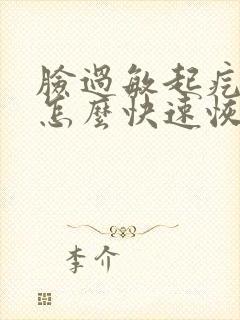 臉過敏起疙
怎麼快速恢
李介